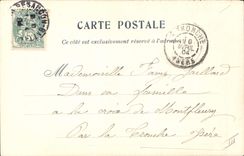 CARTE POSTALE
Ce côté est exclusivement réservé à l'adresse
LA TRONCHE
ISÈRE
Mademoiselle Fanny Gaillard
Dans sa famille
à la croix de Montfleury
Par la Tronche Isère